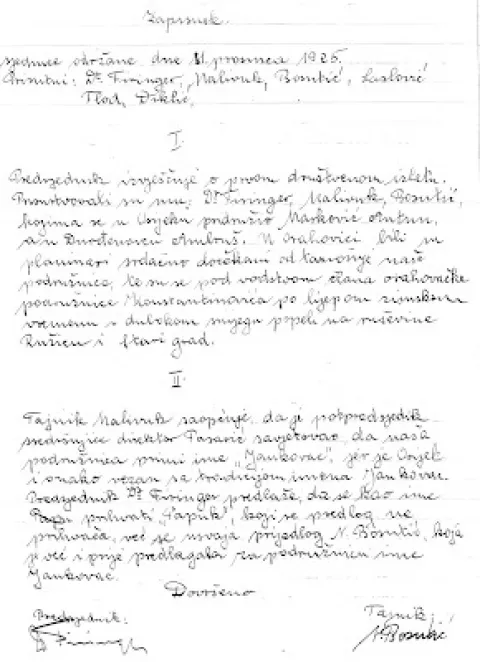 Zapisnik
sjednice održane dne 11. prosinca 1925.
Prisutni: Dr. Firinger, Malivuk, Bosutić, Laslović
Flod, Diklić.
I.
Predsjednik izvješćuje o prvom društvenom izletu.
Prisustvovali su mu: Dr. Firinger, Malivuk, Bosutić,
kojima se u Osjeku pridružio Marković Antun,
a u Đurđenovcu Ambruš. U Orahovici bili su
planinari srdačno dočekani od tamošnje naše
podružnice, te su se pod vodstvom člana orahovačke
podružnice Konstantinovića po lijepom zimskom
vremenu s dubokom snijegu popeli na ruševine
Ružicu i Stari grad.
II.
Tajnik Malivuk saopćuje, da je potpredsjednik
središnjice direktor Pasarić savjetovao, da naša
podružnica primi ime "Jankovac", jer je Osjek
i onako vezan sa tradicijom imena Jankovac.
Predsjednik Dr. Firinger predlaže, da se kao ime
prihvati "Papuk", koji se predlog ne
prihvaća, već se usvaja prijedlog N. Bosutić, koja
je već i prije predlagala za podružnicu ime
Jankovac.
Dovršeno
Predsjednik: Tajnik:
Firinger N. Bosutić